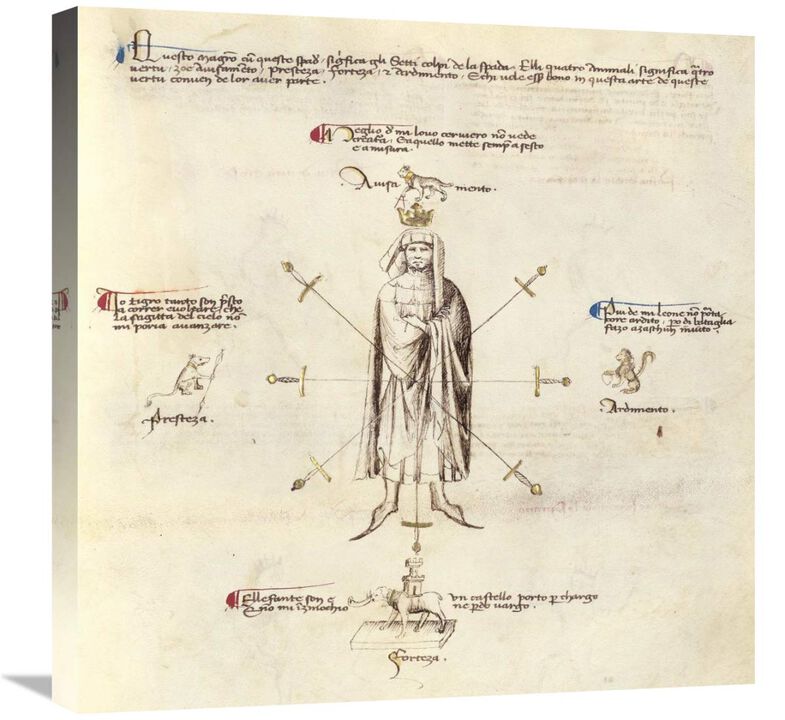 Questo magro cū queste spad sigīfica gli Setti colpi de la spada. Elli quatro animali significa q̄tro
vertu, zoe Avisamēto, Presteza, Forteza, & Ardimento, E chi vole ess bono in questa arte de queste
vertu conven de lor aver parte.
Meglio d mi lovo cerviero nō vede
creat̄a, Ea quello mette semp a sesto
e a misura.
Avisa mento.
Io tigro tanto son p̄sto
a correr e voltare, che
La sagitta del cielo nō
mi poria avanzare.
Più de mi leone nō porta
core ardito, po di bataglia
fazo a zaschun invito.
Presteza.
Ardimento.
Ellefante son e un castello porto p chargo
E nō mi īzinochio ne p̄do vargo.
Forteza.